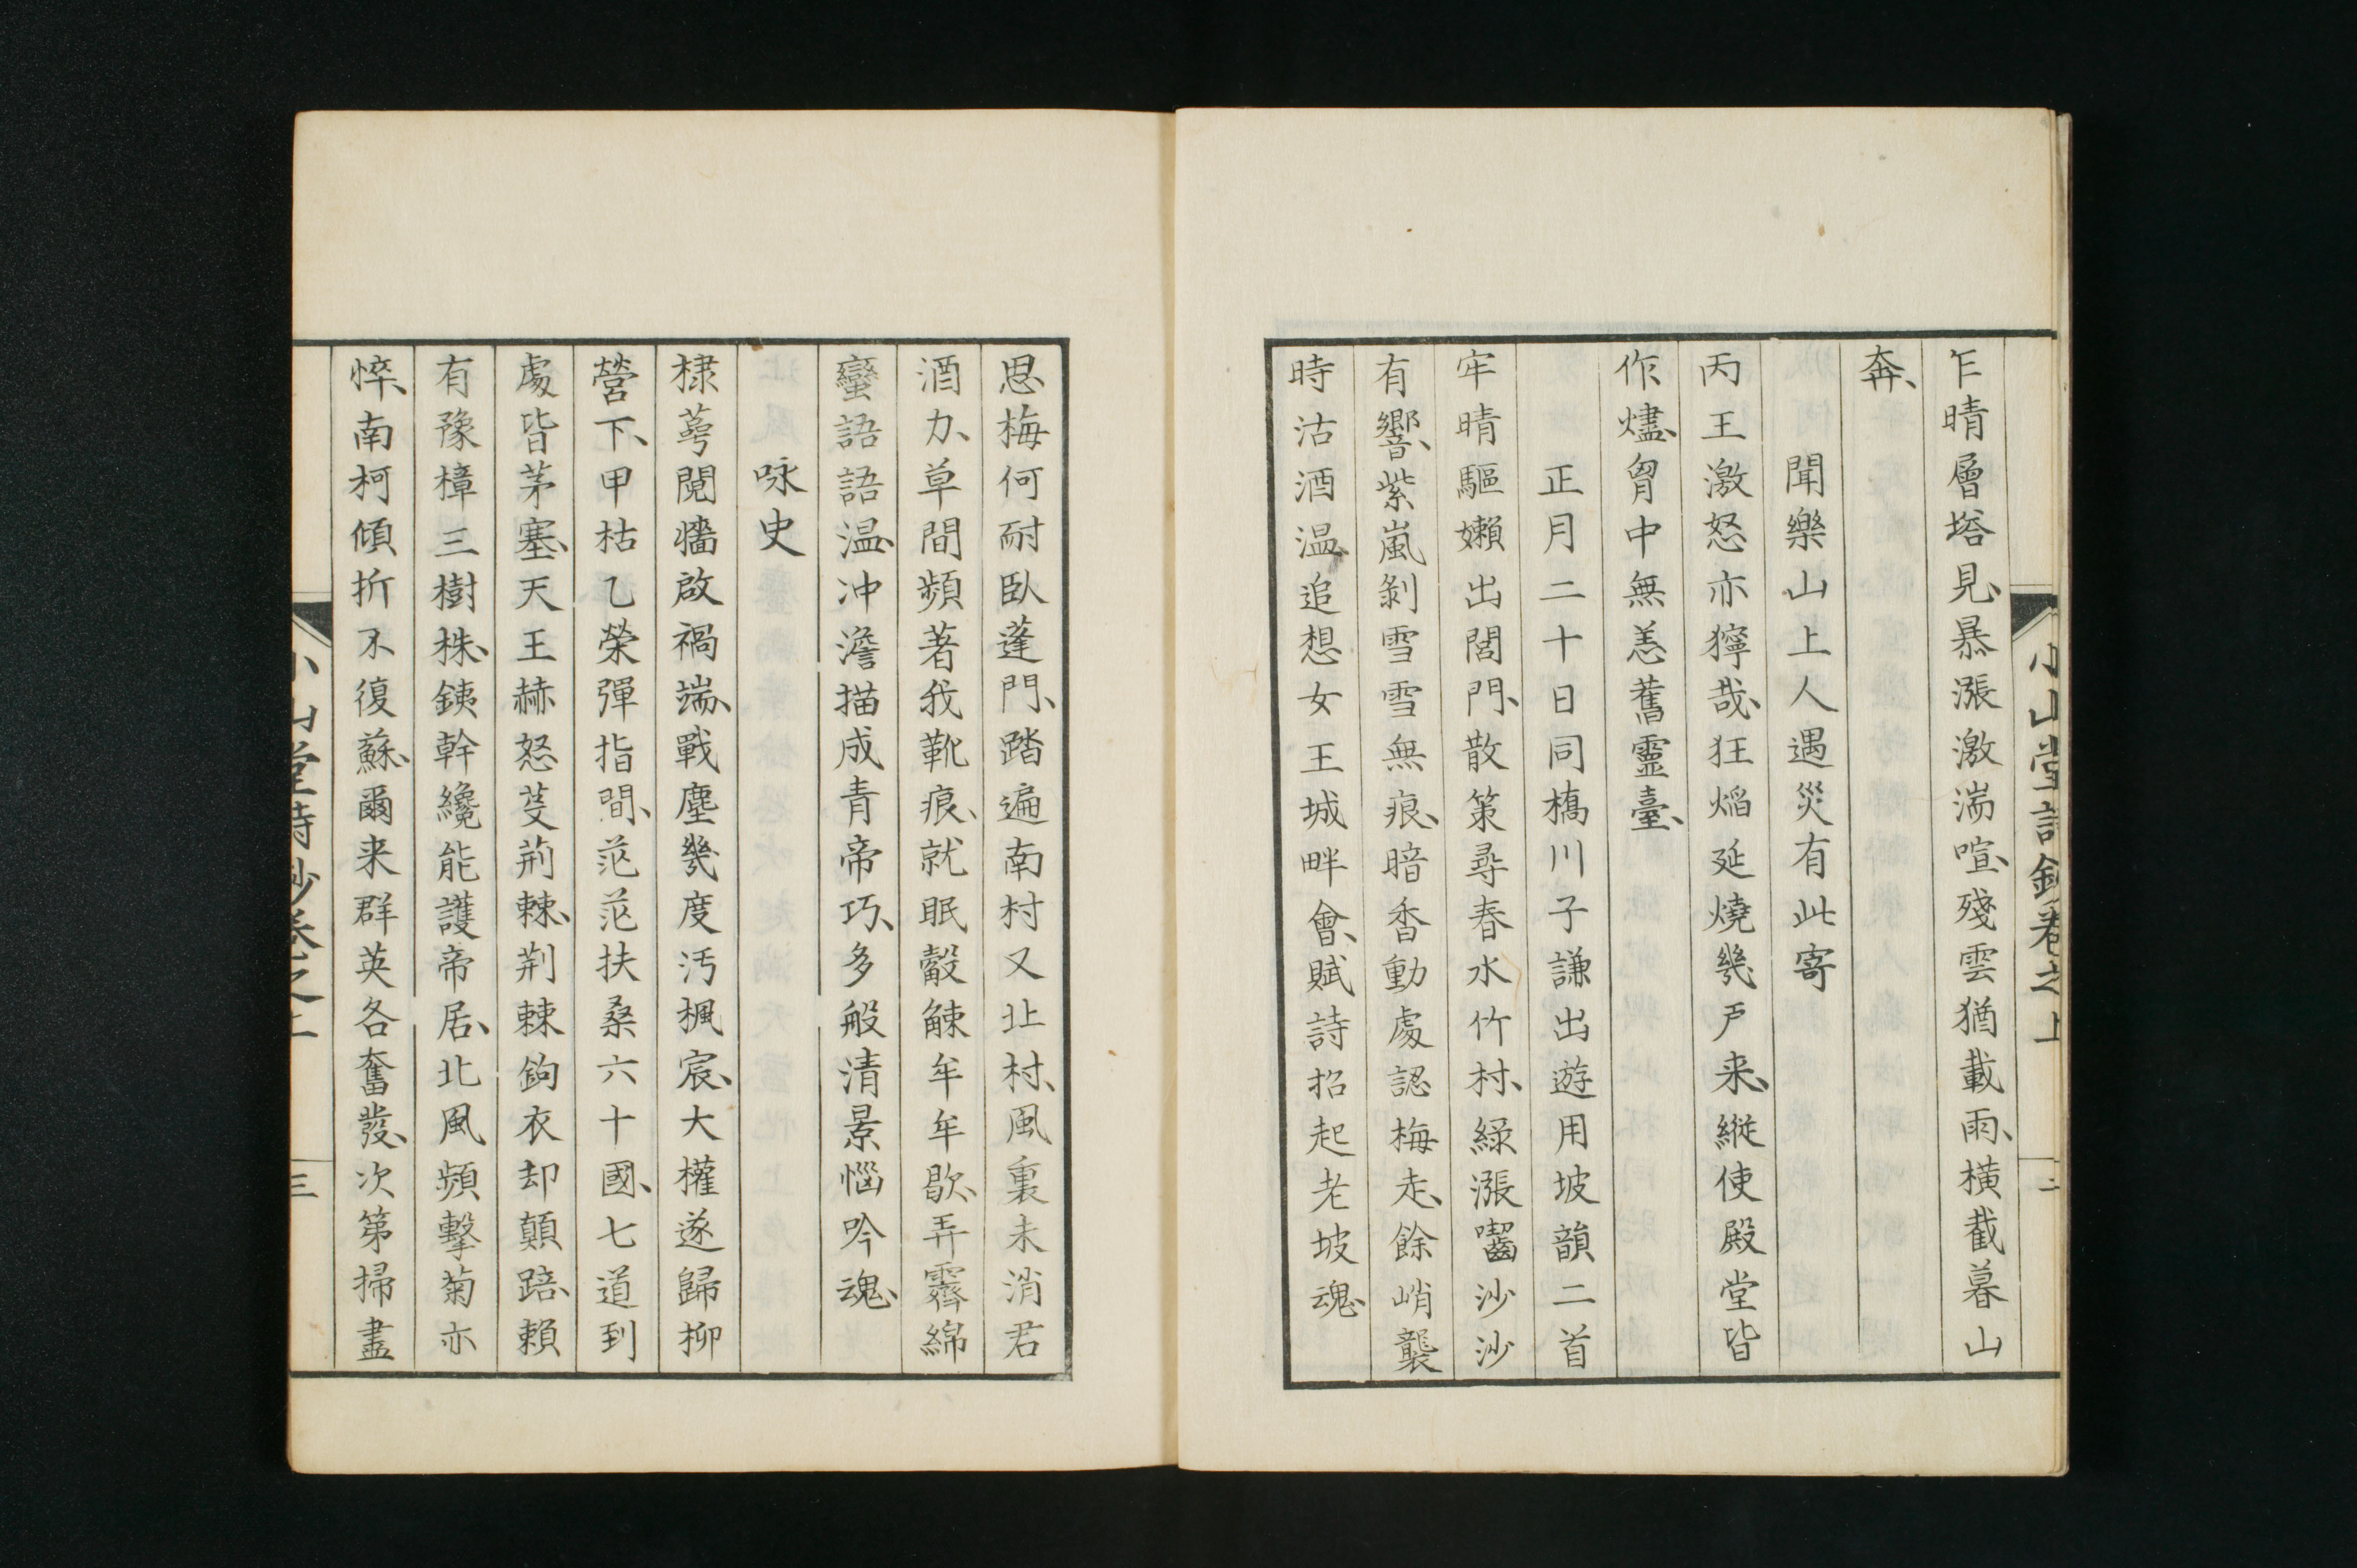 乍晴層塔見、暴漲激湍喧、殘雲猶載雨、橫截暮山
奔、
聞樂山上人遇災有此寄
丙王激怒亦獰哉、狂熖延燒幾戸来、縱使殿堂皆
作燼、胷中無恙舊靈臺、
正月二十日同橋川子謙出遊用坡韻二首
牢晴驅嬾出闊門、散策尋春水竹村、緑漲囓沙沙
有響、紫嵐剝雪雪無痕、暗香動處認梅走、餘峭襲
時沽酒温、追想女王城畔會、賦詩招起老坡魂、
小山堂詩鈔卷之上
二
思梅何耐臥蓬門、踏遍南村又北村、風裏未消君
酒力、草間頻著我靴痕、就眠觳觫牟牟歇、弄霽綿
蠻語語温、冲澹描成青帝巧、多般清景惱吟魂、
咏史
棣萼鬩牆啟禍端、戰塵幾度汚楓宸、大權遂歸柳
營下、甲枯乙榮彈指間、茫茫扶桑六十國、七道到
處皆茅塞、天王赫怒芟荊棘、荊棘鉤衣却顛踣、賴
有豫樟三樹株、銕幹纔能護帝居、北風頻擊菊亦
悴、南柯傾折不復蘇、爾来群英各奮發、次第掃盡
小山堂詩鈔卷之上
三